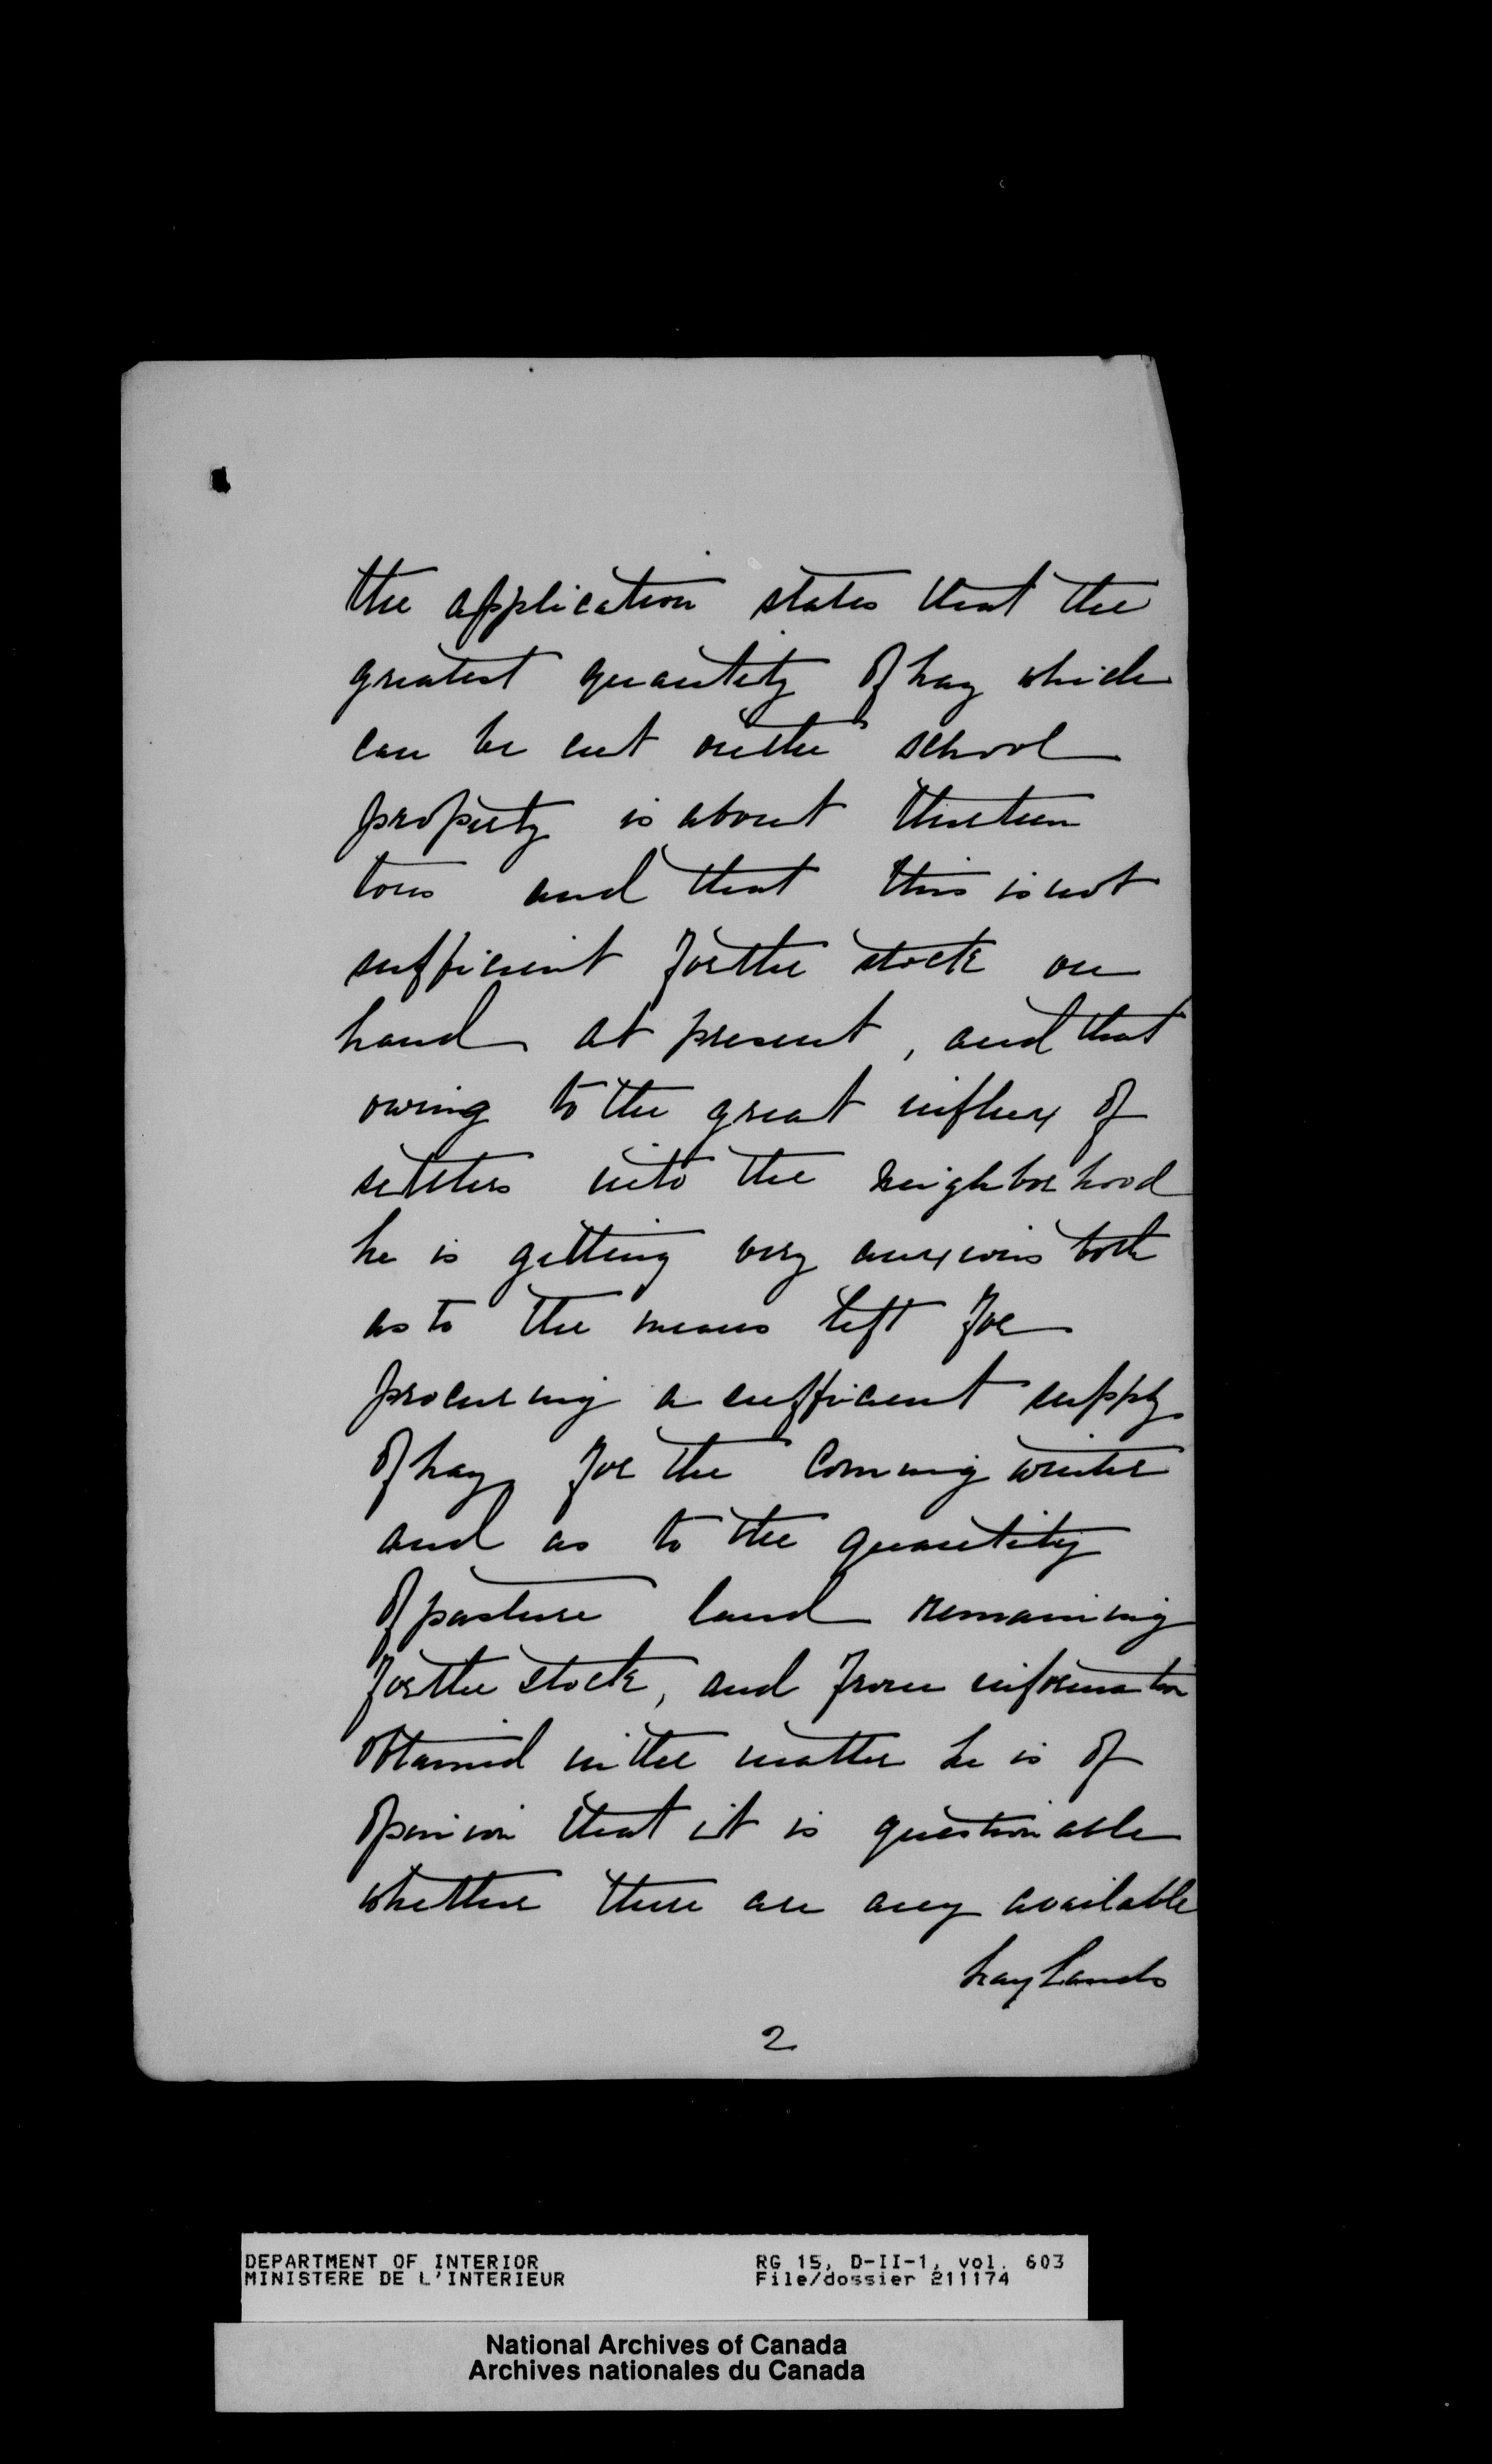 the application states that the
greatest quantity of hay which
can be cut on the school
property is about thirteen
tons and that this is not
sufficient for the stock on
hand at present, and that
owing to the great influx of
settlers into the neighborhood
he is getting very anxious both
as to the means left for
procuring a sufficient supply
of hay for the coming winter
and as to the quantity
of pasture land remaining
for the stock, and from information
obtained in the matter he is of
opinion that it is questionable
whether there are any available
hay lands
2
DEPARTMENT OF INTERIOR RG 15, D-II-1, vol. 603
MINISTERE DE L'INTERIEUR File/dossier 211174
National Archives of Canada
Archives nationales du Canada